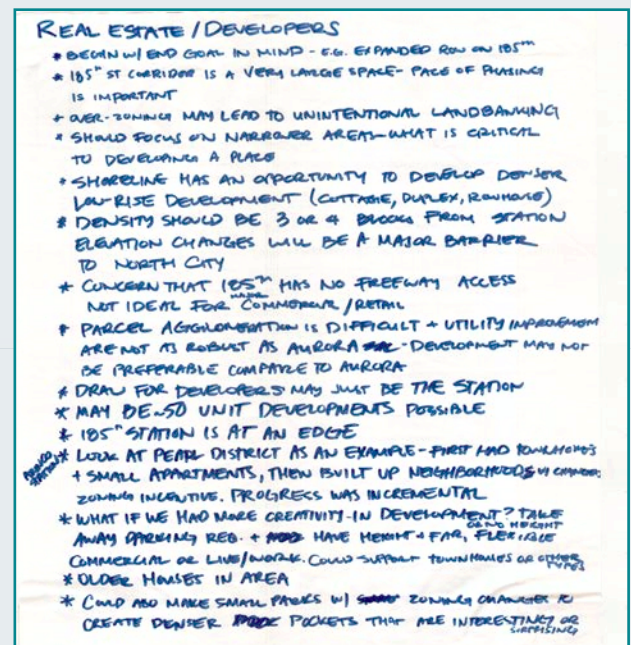 REAL ESTATE/DEVELOPERS
* BEGIN W/ END GOAL IN MIND - E.G. EXPANDED ROW ON 185TH
* 185TH ST CORRIDOR IS A VERY LARGE SPACE - PACE OF PHASING
IS IMPORTANT
* OVER-ZONING MAY LEAD TO UNINTENTIONAL LANDBANKING
* SHOULD FOCUS ON NARROWER AREAS - WHAT IS CRITICAL
TO DEVELOPING A PLACE
* SHORELINE HAS AN OPPORTUNITY TO DEVELOP DENSER
LOW-RISE DEVELOPMENT (COTTAGE, DUPLEX, ROWHOUSE)
* DENSITY SHOULD BE 3 OR 4 BLOCKS FROM STATION
ELEVATION CHANGES WILL BE A MAJOR BARRIER
TO NORTH CITY
* CONCERN THAT 185TH HAS NO FREEWAY ACCESS
NOT IDEAL FOR MAJOR COMMERCIAL/RETAIL
* PARCEL AGGLOMERATION IS DIFFICULT + UTILITY IMPROVEMENTS
ARE NOT AS ROBUST AS AURORA - DEVELOPMENT MAY NOT
BE PREFERABLE COMPARE TO AURORA
* DRAW FOR DEVELOPERS MAY JUST BE THE STATION
* MAY BE 50 UNIT DEVELOPMENTS POSSIBLE
* 185TH STATION IS AT AN EDGE
* LOOK AT PEARL DISTRICT AS AN EXAMPLE - FIRST HAD TOWNHOMES
+ SMALL APARTMENTS, THEN BUILT UP NEIGHBORHOODS W/ CHANGES
ZONING INCENTIVE. PROGRESS WAS INCREMENTAL
* WHAT IF WE HAD MORE CREATIVITY IN DEVELOPMENT? TAKE
AWAY PARKING REQ. + HAVE HEIGHT + FAR, OR NO HEIGHT FLEXIBLE
COMMERCIAL OR LIVE/WORK. COULD SUPPORT TOWNHOMES OR OTHER TYPES
* OLDER HOUSES IN AREA
* COULD ALSO MAKE SMALL PARKS W/ ZONING CHANGES TO
CREATE DENSER POCKETS THAT ARE INTERESTING OR SURPRISING